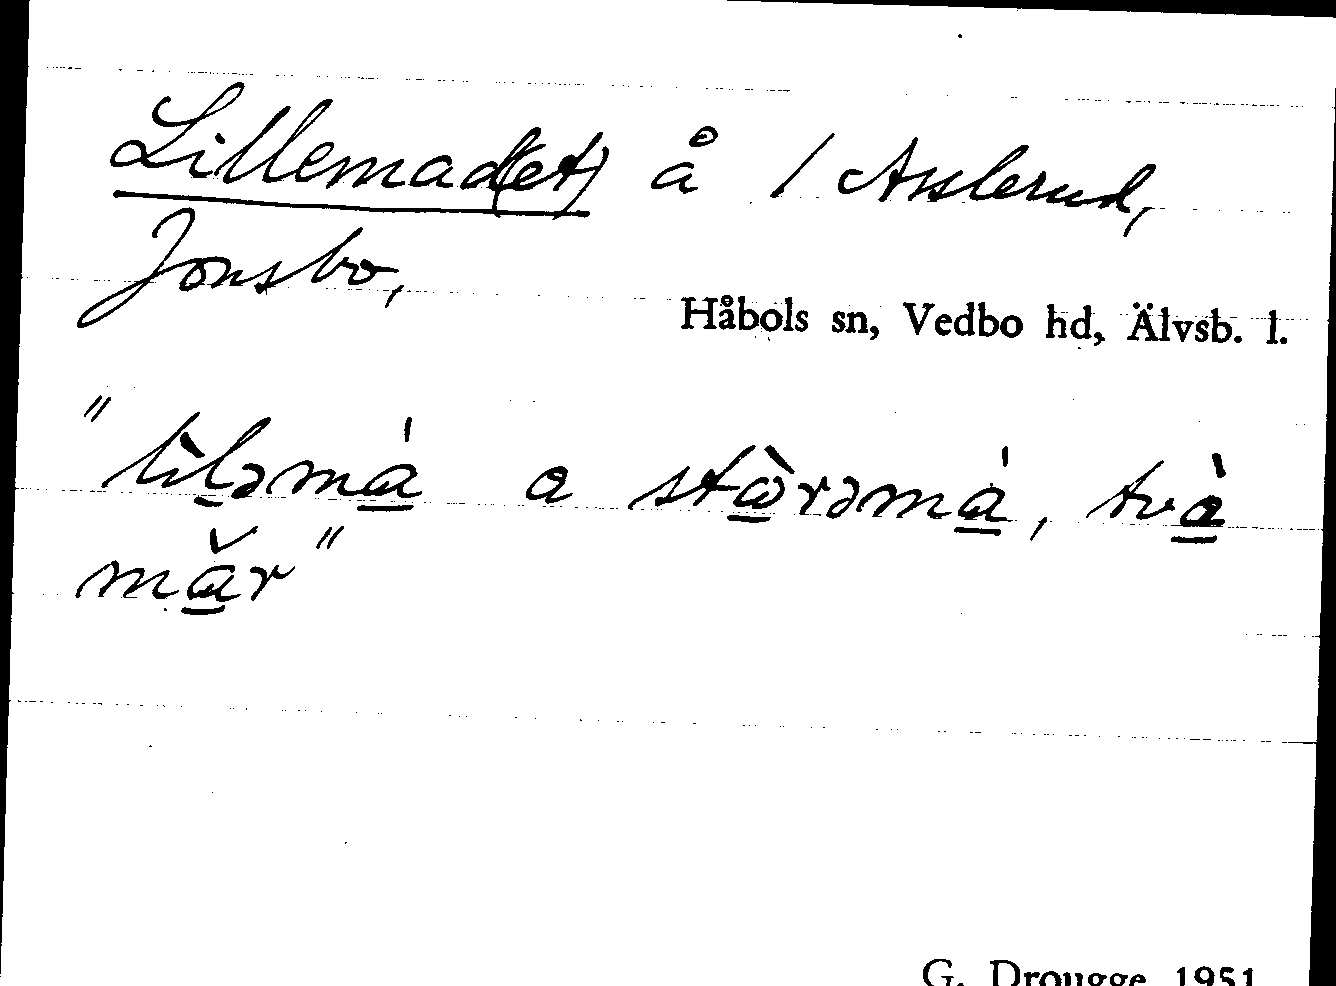 Lillemad(et) å 1 Asslerud,
Jonsbo,
Håbols sn, Vedbo hd, Älvsb. l.
"lìləmá a stòrəmá, två̀
må̌r"
G. Drougge 1951